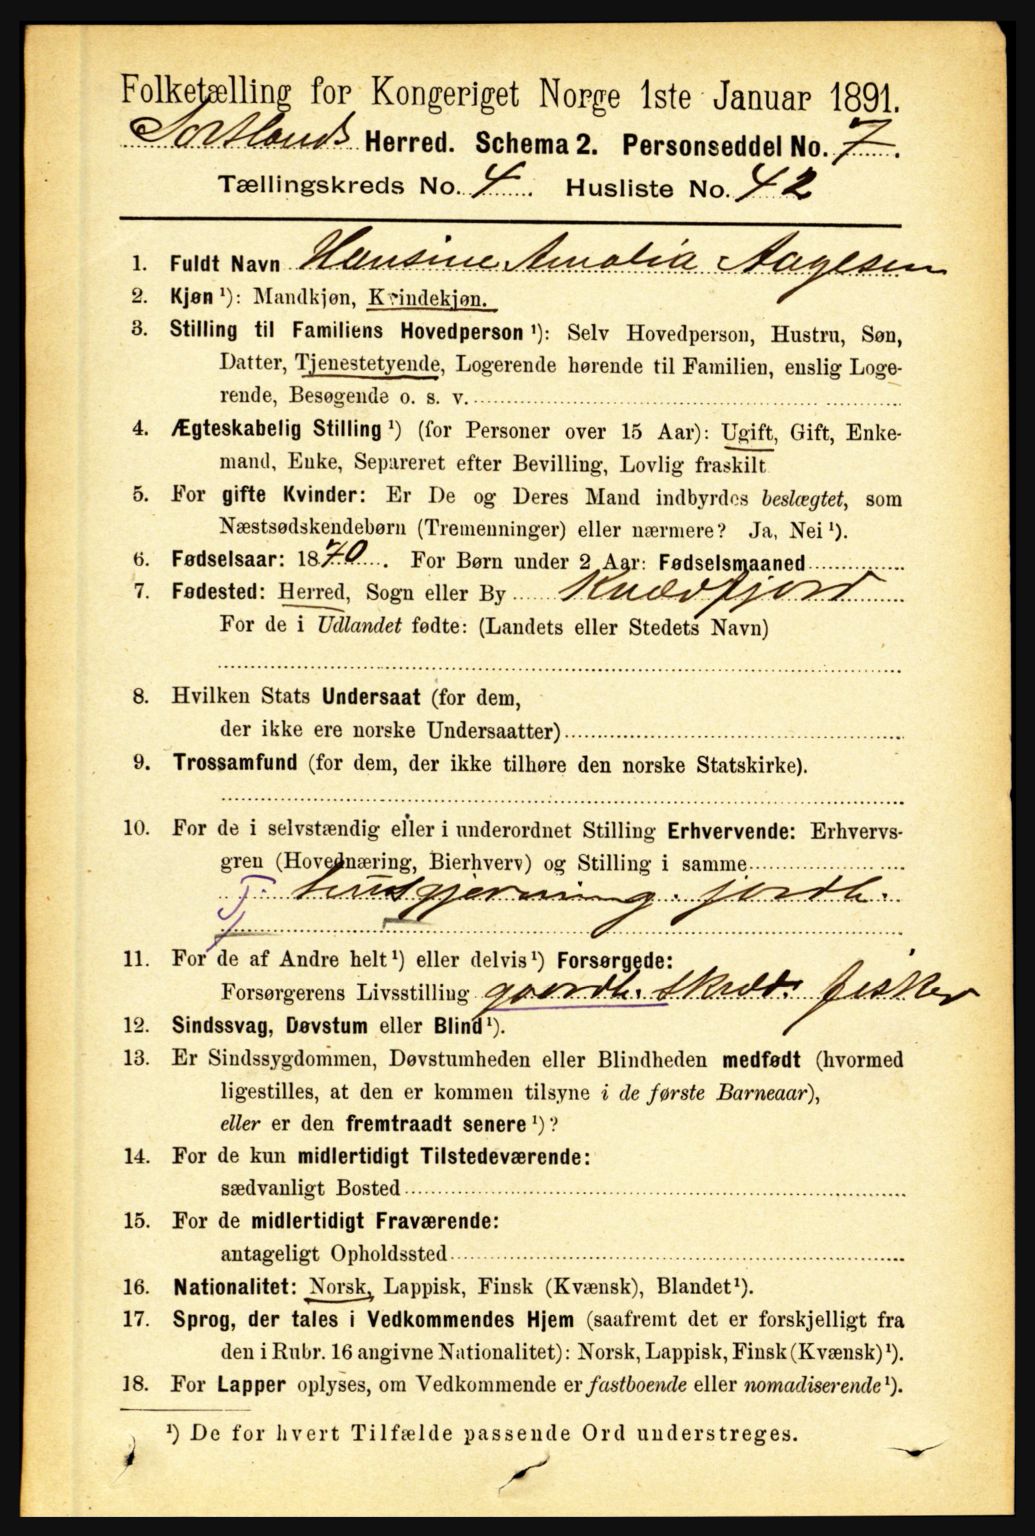 Folketælling for Kongeriget Norge 1ste Januar 1891.
Sortlands Herred. Schema 2. Personseddel No. 7.
Tællingskreds No. 4. Husliste No. 42
1. Fuldt Navn Hansine Amalia Aagesen
2. Kjøn ¹): Mandkjøn, Kvindekjøn.
3. Stilling til Familiens Hovedperson ¹): Selv Hovedperson, Hustru, Søn,
Datter, Tjenestetyende, Logerende hørende til Familien, enslig Loge-
rende, Besøgende o. s. v.
4. Ægteskabelig Stilling ¹) (for Personer over 15 Aar): Ugift, Gift, Enke-
mand, Enke, Separeret efter Bevilling, Lovlig fraskilt
5. For gifte Kvinder: Er De og Deres Mand indbyrdes beslægtet, som
Næstsødskendebørn (Tremenninger) eller nærmere? Ja, Nei ¹).
6. Fødselsaar: 1870. For Børn under 2 Aar: Fødselsmaaned
7. Fødested: Herred, Sogn eller By Kvædfjord
For de i Udlandet fødte: (Landets eller Stedets Navn)
8. Hvilken Stats Undersaat (for dem,
der ikke ere norske Undersaatter)
9. Trossamfund (for dem, der ikke tilhøre den norske Statskirke).
10. For de i selvstændig eller i underordnet Stilling Erhvervende: Erhvervs-
gren (Hovednæring, Bierhverv) og Stilling i samme
T. husgjerning. jordb.
11. For de af Andre helt ¹) eller delvis ¹) Forsørgede:
Forsørgerens Livsstilling gaardb. skræd. fisker
12. Sindssvag, Døvstum eller Blind ¹).
13. Er Sindssygdommen, Døvstumheden eller Blindheden medfødt (hvormed
ligestilles, at den er kommen tilsyne i de første Barneaar),
eller er den fremtraadt senere ¹)?
14. For de kun midlertidigt Tilstedeværende:
sædvanligt Bosted
15. For de midlertidigt Fraværende:
antageligt Opholdssted
16. Nationalitet: Norsk, Lappisk, Finsk (Kvænsk), Blandet ¹).
17. Sprog, der tales i Vedkommendes Hjem (saafremt det er forskjelligt fra
den i Rubr. 16 angivne Nationalitet): Norsk, Lappisk, Finsk (Kvænsk) ¹).
18. For Lapper oplyses, om Vedkommende er fastboende eller nomadiserende ¹).
¹) De for hvert Tilfælde passende Ord understreges.